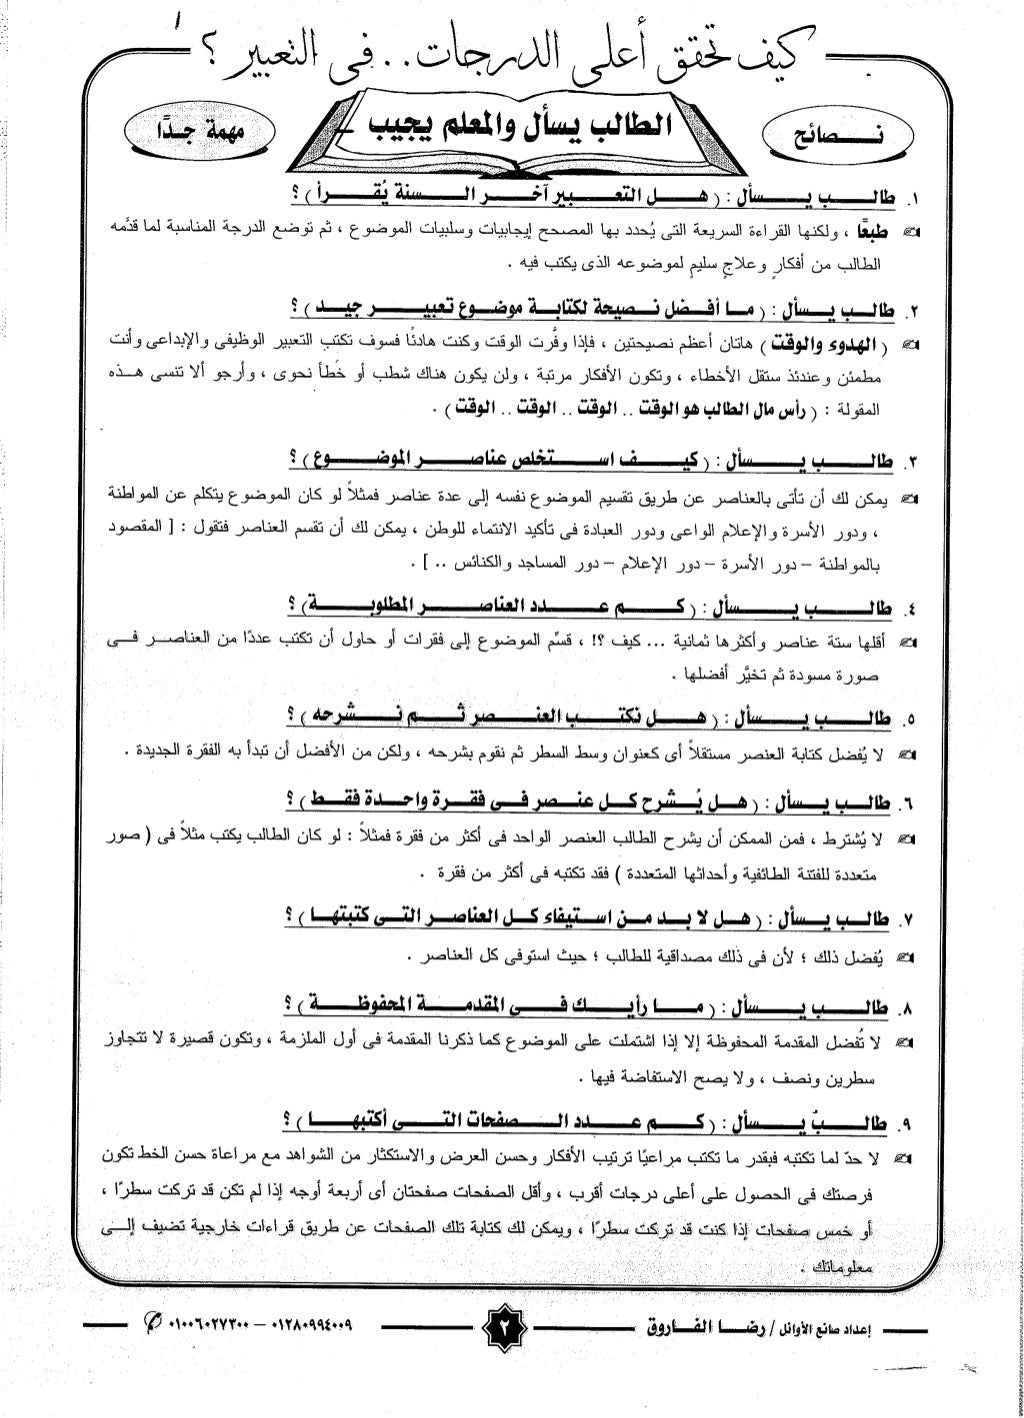 كيف تحقق أعلى الدرجات.. فى التعبير ؟
نصائح
الطالب يسأل والمعلم يجيب
مهمة جدًا
١. طالب يسأل : ( هل التعبير آخر السنة يُقرأ ) ؟
طبعًا ، ولكنها القراءة السريعة التى يُحدد بها المصحح إيجابيات وسلبيات الموضوع ، ثم توضع الدرجة المناسبة لما قدَّمه
الطالب من أفكارٍ وعلاجٍ سليمٍ لموضوعه الذى يكتب فيه .
٢. طالب يسأل : ( ما أفضل نصيحة لكتابة موضوع تعبير جيد ) ؟
( الهدوء والوقت ) هاتان أعظم نصيحتين ، فإذا وفَّرت الوقت وكنت هادئًا فسوف تكتب التعبير الوظيفى والإبداعى وأنت
مطمئن وعندئذ ستقل الأخطاء ، وتكون الأفكار مرتبة ، ولن يكون هناك شطب أو خطأ نحوى ، وأرجو ألا تنسى هذه
المقولة : ( رأس مال الطالب هو الوقت .. الوقت .. الوقت .. الوقت ) .
٣. طالب يسأل : ( كيف استخلص عناصر الموضوع ) ؟
يمكن لك أن تأتى بالعناصر عن طريق تقسيم الموضوع نفسه إلى عدة عناصر فمثلاً لو كان الموضوع يتكلم عن المواطنة
، ودور الأسرة والإعلام الواعى ودور العبادة فى تأكيد الانتماء للوطن ، يمكن لك أن تقسم العناصر فتقول : [ المقصود
بالمواطنة – دور الأسرة – دور الإعلام – دور المساجد والكنائس .. ] .
٤. طالب يسأل : ( كم عدد العناصر المطلوبة ) ؟
أقلها ستة عناصر وأكثرها ثمانية ... كيف ؟! ، قسِّم الموضوع إلى فقرات أو حاول أن تكتب عددًا من العناصر فى
صورة مسودة ثم تخيَّر أفضلها .
٥. طالب يسأل : ( هل نكتب العنصر ثم نشرحه ) ؟
لا يُفضل كتابة العنصر مستقلاً أى كعنوان وسط السطر ثم نقوم بشرحه ، ولكن من الأفضل أن تبدأ به الفقرة الجديدة .
٦. طالب يسأل : ( هل يُشرح كل عنصر فى فقرة واحدة فقط ) ؟
لا يُشترط ، فمن الممكن أن يشرح الطالب العنصر الواحد فى أكثر من فقرة فمثلاً : لو كان الطالب يكتب مثلاً فى ( صور
متعددة للفتنة الطائفية وأحداثها المتعددة ) فقد تكتبه فى أكثر من فقرة .
٧. طالب يسأل : ( هل لا بد من استيفاء كل العناصر التى كتبتها ) ؟
يُفضل ذلك ؛ لأن فى ذلك مصداقية للطالب ؛ حيث استوفى كل العناصر .
٨. طالب يسأل : ( ما رأيك فى المقدمة المحفوظة ) ؟
لا تُفضل المقدمة المحفوظة إلا إذا اشتملت على الموضوع كما ذكرنا المقدمة فى أول الملزمة ، وتكون قصيرة لا تتجاوز
سطرين ونصف ، ولا يصح الاستفاضة فيها .
٩. طالبٌ يسأل : ( كم عدد الصفحات التى أكتبها ) ؟
لا حدّ لما تكتبه فبقدر ما تكتب مراعيًا ترتيب الأفكار وحسن العرض والاستكثار من الشواهد مع مراعاة حسن الخط تكون
فرصتك فى الحصول على أعلى درجات أقرب ، وأقل الصفحات صفحتان أى أربعة أوجه إذا لم تكن قد تركت سطرًا ،
أو خمس صفحات إذا كنت قد تركت سطرًا ، ويمكن لك كتابة تلك الصفحات عن طريق قراءات خارجية تضيف إلى
معلوماتك .
إعداد صانع الأوائل / رضا الفاروق
٢
٠١٢٨٠٩٩٤٠٠٩ – ٠١٠٠٦٠٢٧٣٠٠